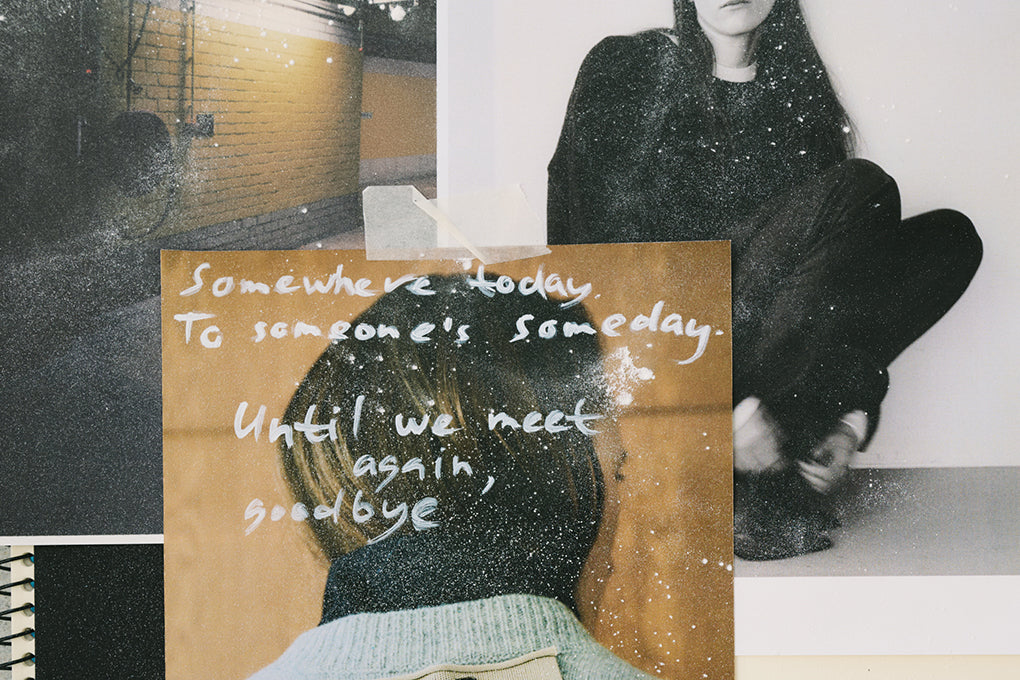 Somewhere today,
To someone's someday.
Until we meet
again,
goodbye